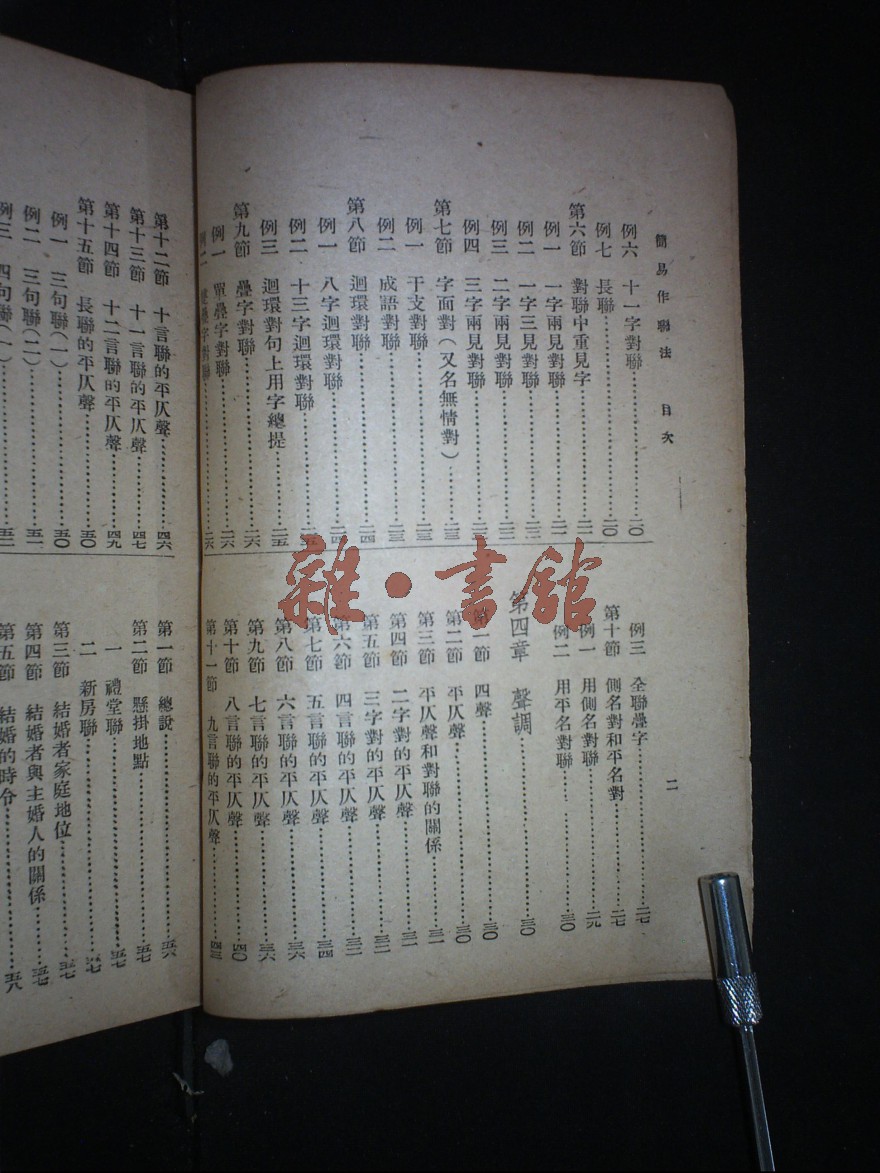 簡易作聯法　目次
二
例六　十一字對聯……二〇
例七　長聯……二〇
第六節　對聯中重見字……二一
例一　一字兩見對聯……二一
例二　一字三見對聯……二二
例三　二字兩見對聯……二二
例四　三字兩見對聯……二三
第七節　字面對（又名無情對）……二三
例一　干支對聯……二三
例二　成語對聯……二三
第八節　迴環對聯……二四
例一　八字迴環對聯……二四
例二　十三字迴環對聯……二五
例三　迴環對句上用字總提……二五
第九節　疊字對聯……二六
例一　單疊字對聯……二六
例二　雙疊字對聯……二六
例三　全聯疊字……二七
第十節　側名對和平名對……二七
例一　用側名對聯……二九
例二　用平名對聯……三〇
第四章　聲調……三〇
第一節　四聲……三〇
第二節　平仄聲……三〇
第三節　平仄聲和對聯的關係……三一
第四節　二字對的平仄聲……三一
第五節　三字對的平仄聲……三二
第六節　四言聯的平仄聲……三二
第七節　五言聯的平仄聲……三四
第八節　六言聯的平仄聲……三六
第九節　七言聯的平仄聲……三六
第十節　八言聯的平仄聲……四〇
第十一節　九言聯的平仄聲……四三
第十二節　十言聯的平仄聲……四六
第十三節　十一言聯的平仄聲……四七
第十四節　十二言聯的平仄聲……四九
第十五節　長聯的平仄聲……五〇
例一　三句聯（一）……五〇
例二　三句聯（二）……五一
例三　四句聯（一）……五二
第一節　總說……五六
第二節　懸掛地點……五七
一　禮堂聯……五七
二　新房聯……五七
第三節　結婚者家庭地位……五七
第四節　結婚者與主婚人的關係……五七
第五節　結婚的時令……五八
雜·書館